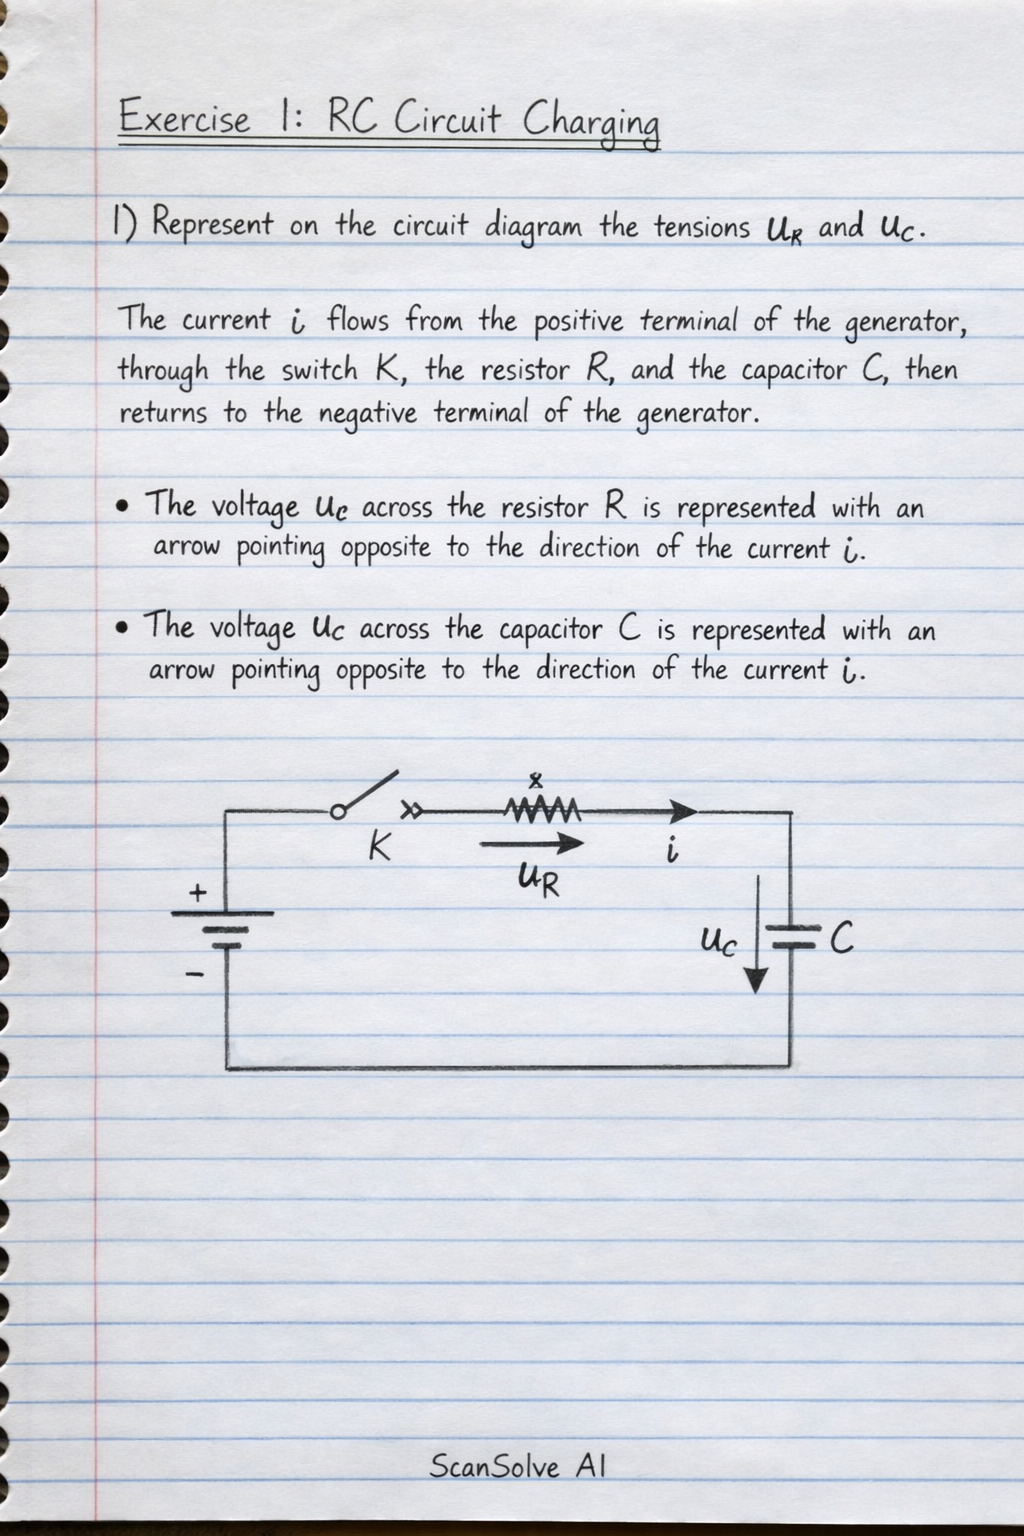 Exercise 1: RC Circuit Charging
1) Represent on the circuit diagram the tensions u_R and u_C.
The current i flows from the positive terminal of the generator,
through the switch K, the resistor R, and the capacitor C, then
returns to the negative terminal of the generator.
• The voltage u_c across the resistor R is represented with an
arrow pointing opposite to the direction of the current i.
• The voltage u_C across the capacitor C is represented with an
arrow pointing opposite to the direction of the current i.
K
i
u_R
+
u_C
C
−
ScanSolve AI